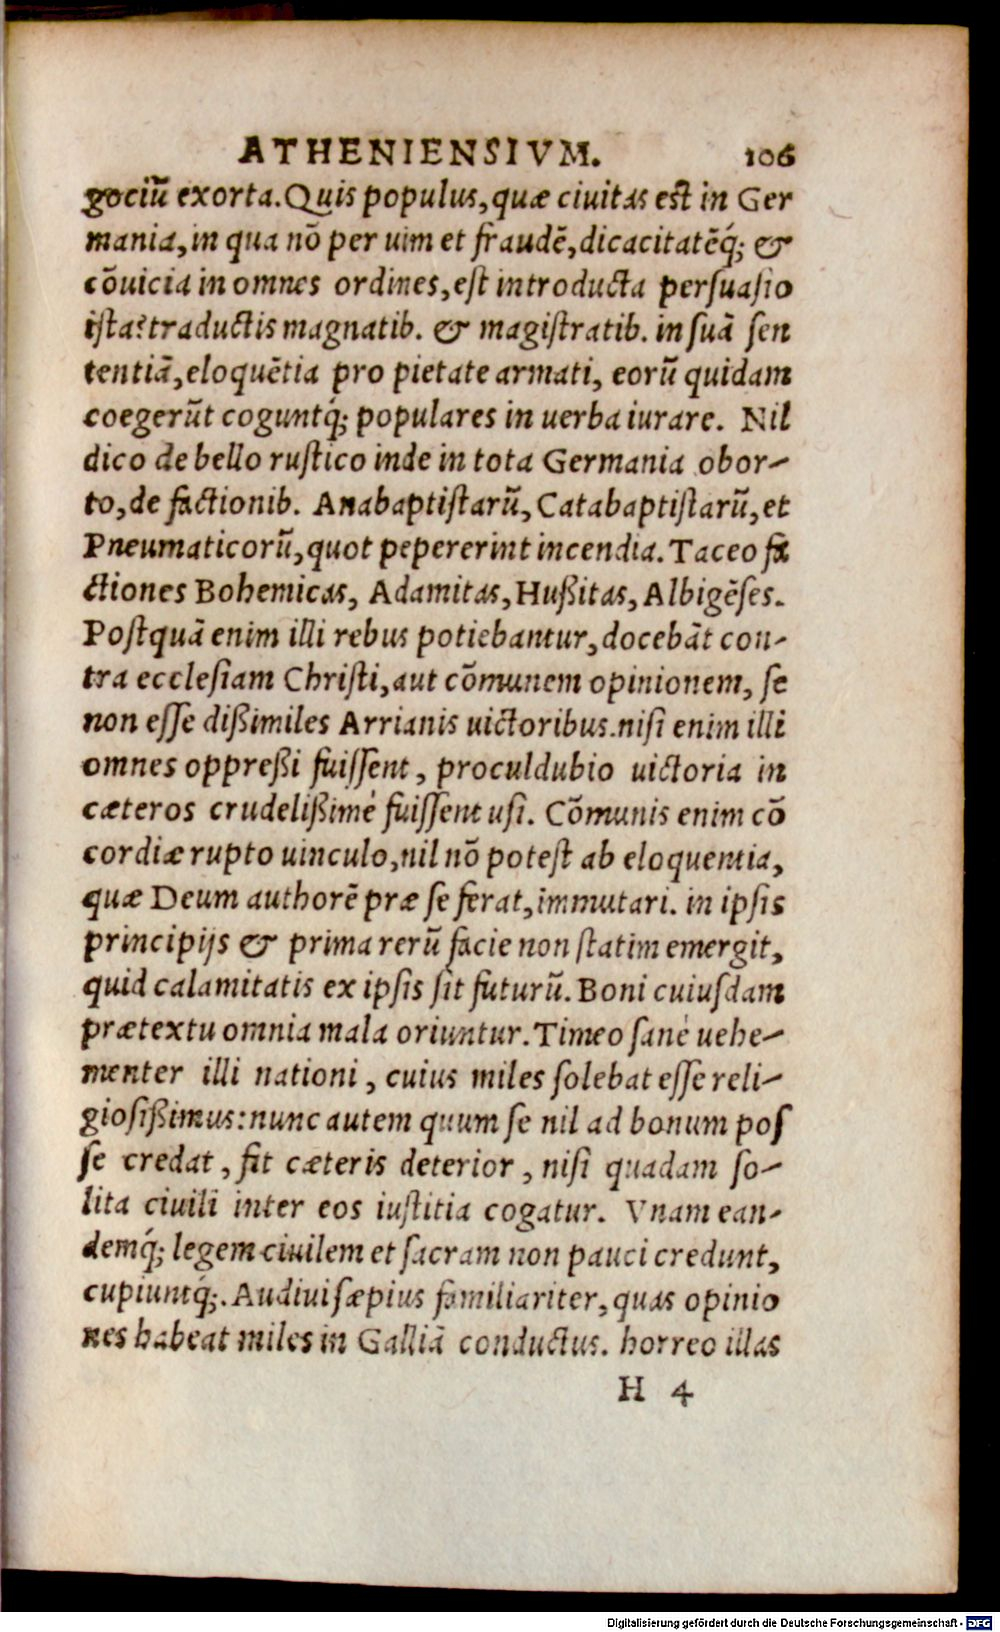 ATHENIENSIVM. 106
gociū exorta. Quis populus, quæ ciuitas est in Ger
mania, in qua nō per uim et fraudē, dicacitatēq́; &
cōuicia in omnes ordines, est introducta persuasio
ista? traductis magnatib. & magistratib. in suā sen
tentiā, eloquētia pro pietate armati, eorū quidam
coegerūt coguntq́; populares in uerba iurare. Nil
dico de bello rustico inde in tota Germania obor-
to, de factionib. Anabaptistarū, Catabaptistarū, et
Pneumaticorū, quot pepererint incendia. Taceo fa
ctiones Bohemicas, Adamitas, Hußitas, Albigēses.
Postquā enim illi rebus potiebantur, docebāt con-
tra ecclesiam Christi, aut cōmunem opinionem, se
non esse dißimiles Arrianis uictoribus. nisi enim illi
omnes oppreßi fuissent, proculdubio uictoria in
cæteros crudelißimè fuissent usi. Cōmunis enim cō
cordiæ rupto uinculo, nil nō potest ab eloquentia,
quæ Deum authorē præ se ferat, immutari. in ipsis
principijs & prima rerū facie non statim emergit,
quid calamitatis ex ipsis sit futurū. Boni cuiusdam
prætextu omnia mala oriuntur. Timeo sanè uehe-
menter illi nationi, cuius miles solebat esse reli-
giosißimus: nunc autem quum se nil ad bonum pos
se credat, fit cæteris deterior, nisi quadam so-
lita ciuili inter eos iustitia cogatur. Vnam ean-
demq́; legem ciuilem et sacram non pauci credunt,
cupiuntq́;. Audiui sæpius familiariter, quas opinio
nes habeat miles in Galliā conductus. horreo illas
H 4
Digitalisierung gefördert durch die Deutsche Forschungsgemeinschaft - DFG